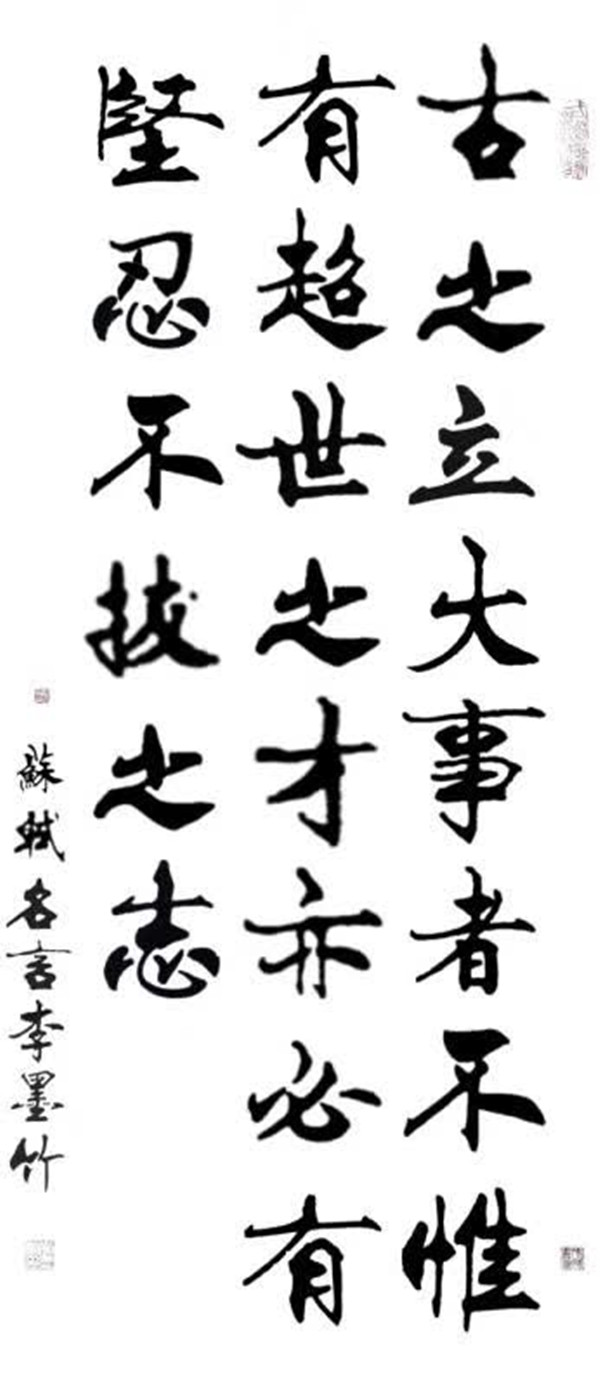 古之立大事者不惟
有超世之才亦必有
堅忍不拔之志
蘇軾名言李墨竹